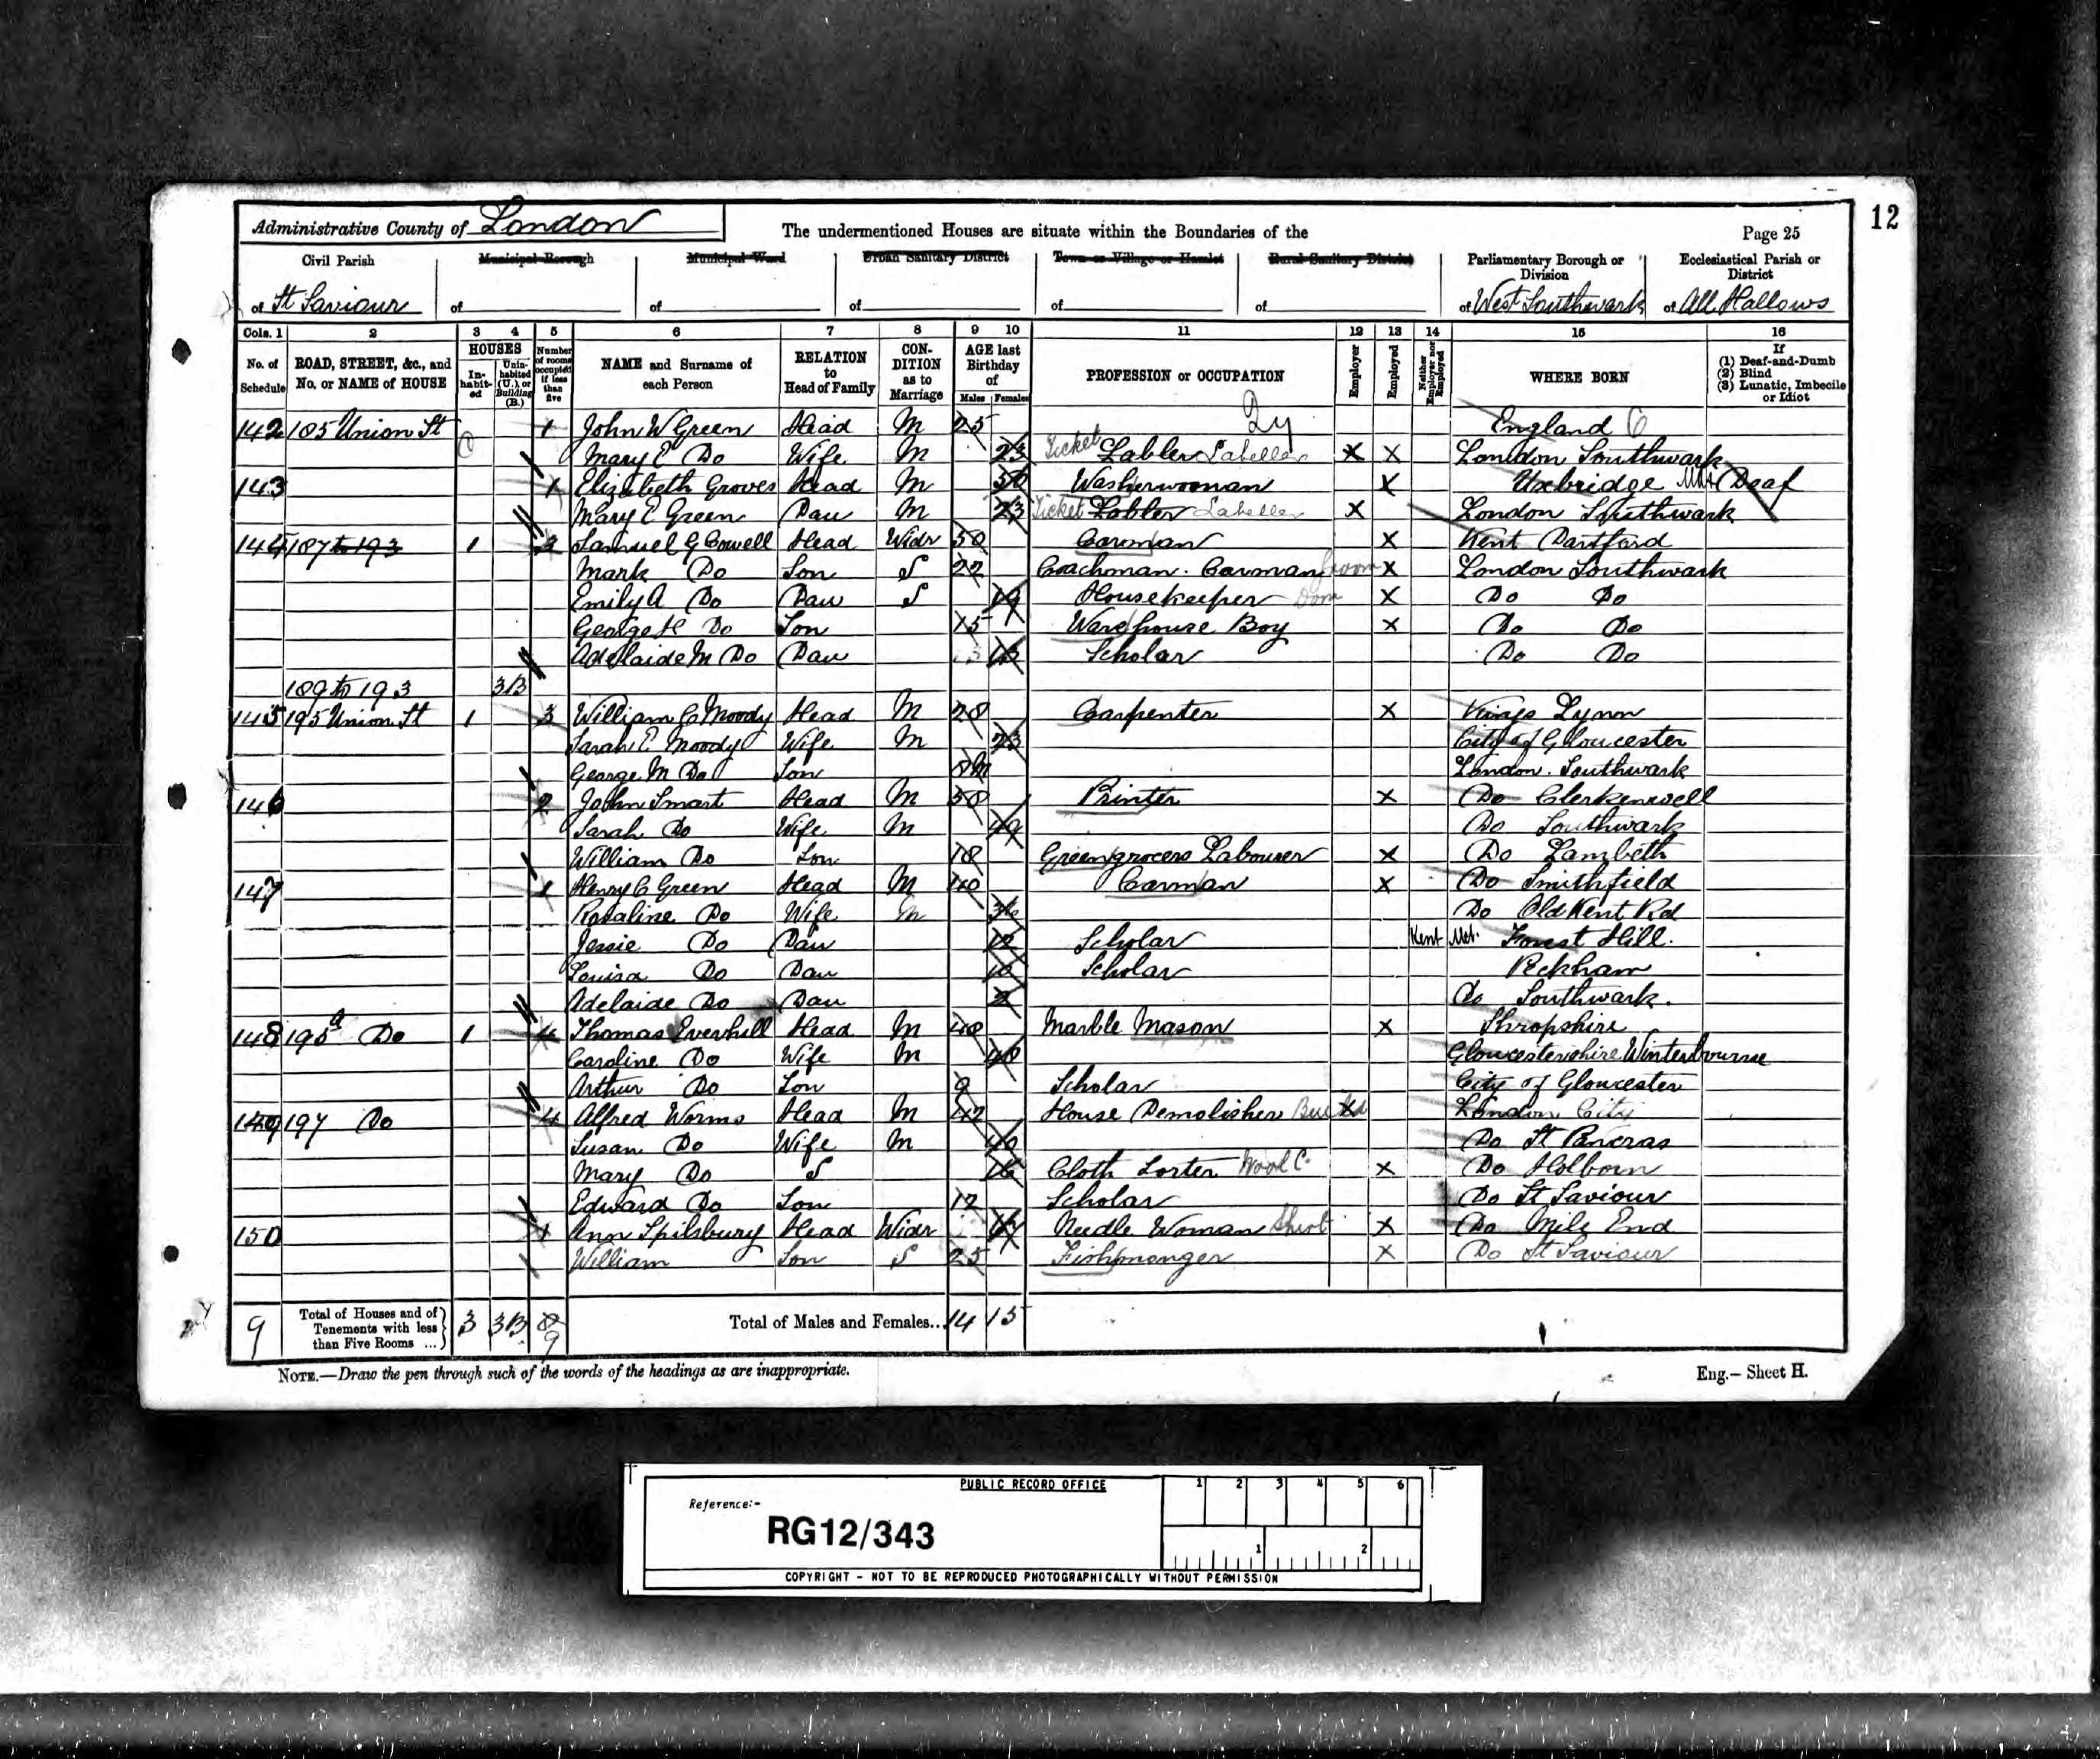 12
Administrative County of London The undermentioned Houses are situate within the Boundaries of the Page 25
Civil Parish Municipal Borough Municipal Ward Urban Sanitary District Town or Village or Hamlet Rural Sanitary District Parliamentary Borough or Division Ecclesiastical Parish or District
of St Saviour of of of of of of West Southwark of All Hallows
Cols. 1 2 3 4 5 6 7 8 9 10 11 12 13 14 15 16
No. of Schedule ROAD, STREET, &c., and No. or NAME of HOUSE HOUSES In-habit-ed Unin-habited (U.), or Building (B.) Number of rooms occupied if less than five NAME and Surname of each Person RELATION to Head of Family CON-DITION as to Marriage AGE last Birthday of Males Females PROFESSION or OCCUPATION Employer Employed Neither Employer nor Employed WHERE BORN If (1) Deaf-and-Dumb (2) Blind (3) Lunatic, Imbecile or Idiot
142 185 Union St 1 John W Green Head M 25 Qy England
Mary E Do Wife M 23 Ticket Labler Labeller X X London Southwark
143 1 Elizabeth Groves Head M 50 Washerwoman X Uxbridge Deaf
Mary E Green Dau M 23 Ticket Labler Labeller X London Southwark
144 187 to 193 1 Samuel G Cowell Head Widr 50 Carman X Kent Dartford
Mark Do Son S 22 Coachman. Carman Groom X London Southwark
Emily A Do Dau S 19 Housekeeper Dom X Do Do
George H Do Son 15 Warehouse Boy X Do Do
Adelaide M Do Dau 13 Scholar Do Do
189 to 193 3B
145 195 Union St 1 3 William C Moody Head M 28 Carpenter X Kings Lynn
Sarah E Moody Wife M 23 City of Gloucester
George M Do Son 8m London. Southwark
146 2 John Smart Head M 50 Printer X Do Clerkenwell
Sarah Do Wife M 49 Do Southwark
William Do Son 18 Greengrocers Labourer X Do Lambeth
147 1 Henry C Green Head M 40 Carman X Do Smithfield
Rosaline Do Wife M 36 Do Old Kent Rd
Jessie Do Dau 12 Scholar Kent Forest Hill.
Louisa Do Dau 10 Scholar Peckham
Adelaide Do Dau 2 Do Southwark.
148 195a Do 1 4 Thomas Everhill Head M 48 Marble Mason X Shropshire
Caroline Do Wife M 40 Gloucestershire Winterbourne
Arthur Do Son 9 Scholar City of Gloucester
149 197 Do 4 Alfred Worms Head M 42 House Demolisher X London City
Susan Do Wife M 40 Do St Pancras
Mary Do S 16 Cloth Sorter Wool C. X Do Holborn
Edward Do Son 12 Scholar Do St Saviour
150 1 Ann Spilsbury Head Widr Needle Woman Shirt X Do Mile End
William Son S 25 Fishmonger X Do St Saviour
9 Total of Houses and of Tenements with less than Five Rooms ... 3 3B 9 Total of Males and Females... 14 15
NOTE.—Draw the pen through such of the words of the headings as are inappropriate. Eng.— Sheet H.
PUBLIC RECORD OFFICE 1 2 3 4 5 6
Reference:-
RG12/343
1 2
COPYRIGHT - NOT TO BE REPRODUCED PHOTOGRAPHICALLY WITHOUT PERMISSION